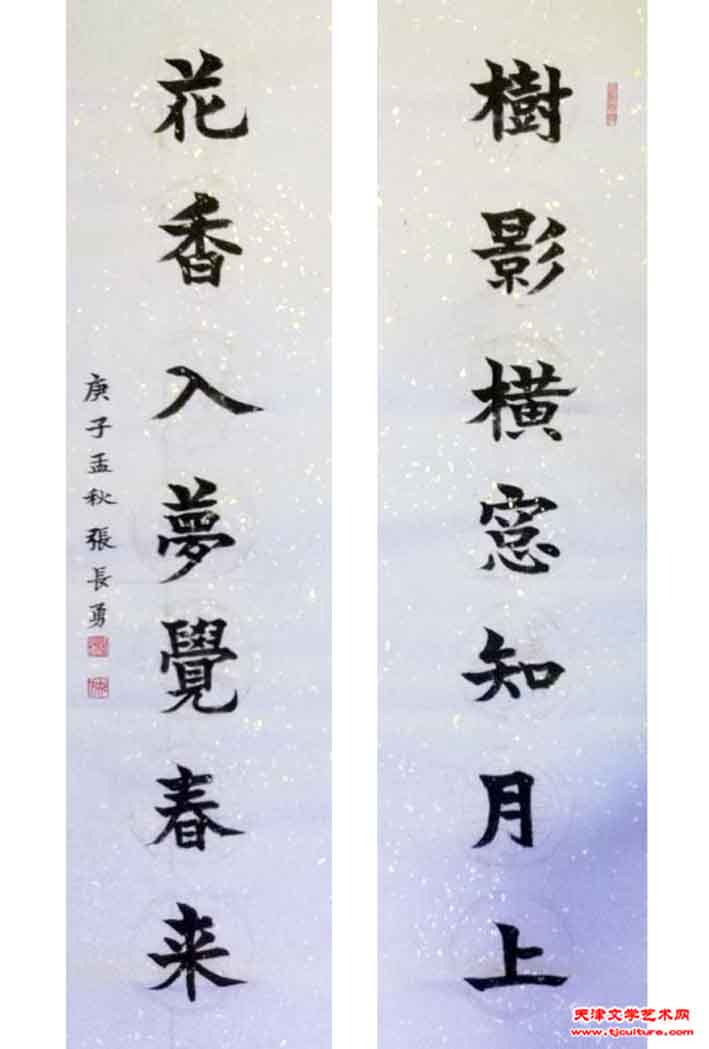 樹影橫窓知月上
花香入夢覺春来
庚子孟秋張長勇
天津文学艺术网
www.tjculture.com